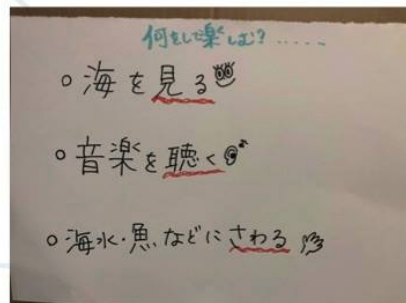 何をして楽しむ?.....
○海を見る
○音楽を聴く
○海水・魚などにさわる